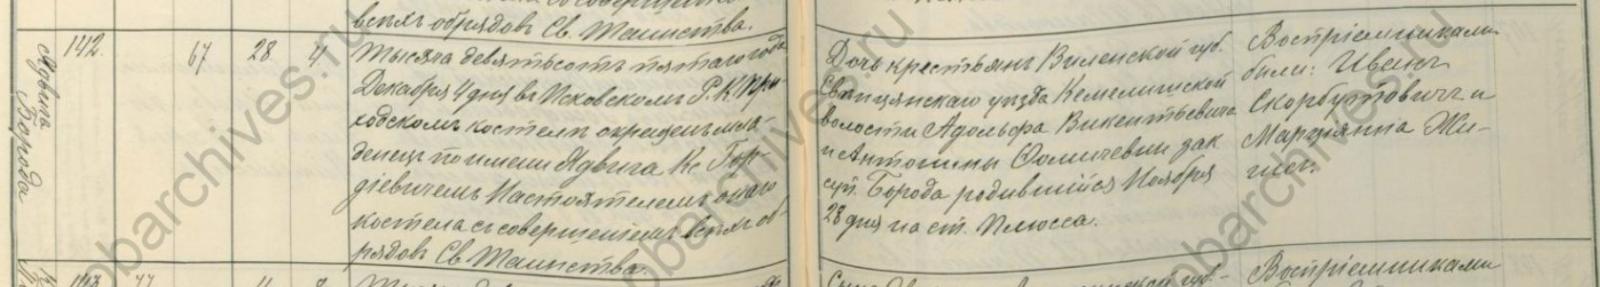 всѣхъ обрядовъ Св. Таинства.
Ядвига
Борода
142.
67
28
4
Тысяча девятьсотъ пятаго года
Декабря 4 дня въ Псковскомъ Р. К. При-
ходскомъ костелѣ окрещенъ мла-
денецъ по имени Ядвига Кс. Гор-
діевичемъ Настоятелемъ онаго
костела съ совершеніемъ всѣхъ об-
рядовъ Св Таинства.
Дочь крестьянъ Виленской губ.
Свенцянскаго уѣзда Кемелишской
волости Адольфа Викентьевича
и Антонины зак
суп. Борода родившійся Ноября
28 дня на ст. Плюсса.
Воспріемниками
были: Иванъ
Скорбутовичъ и
Марцянна Жи-
143
77
11
Воспріемниками
obarchives.ru
obarchives.ru
obarchives.ru
obarchives.ru